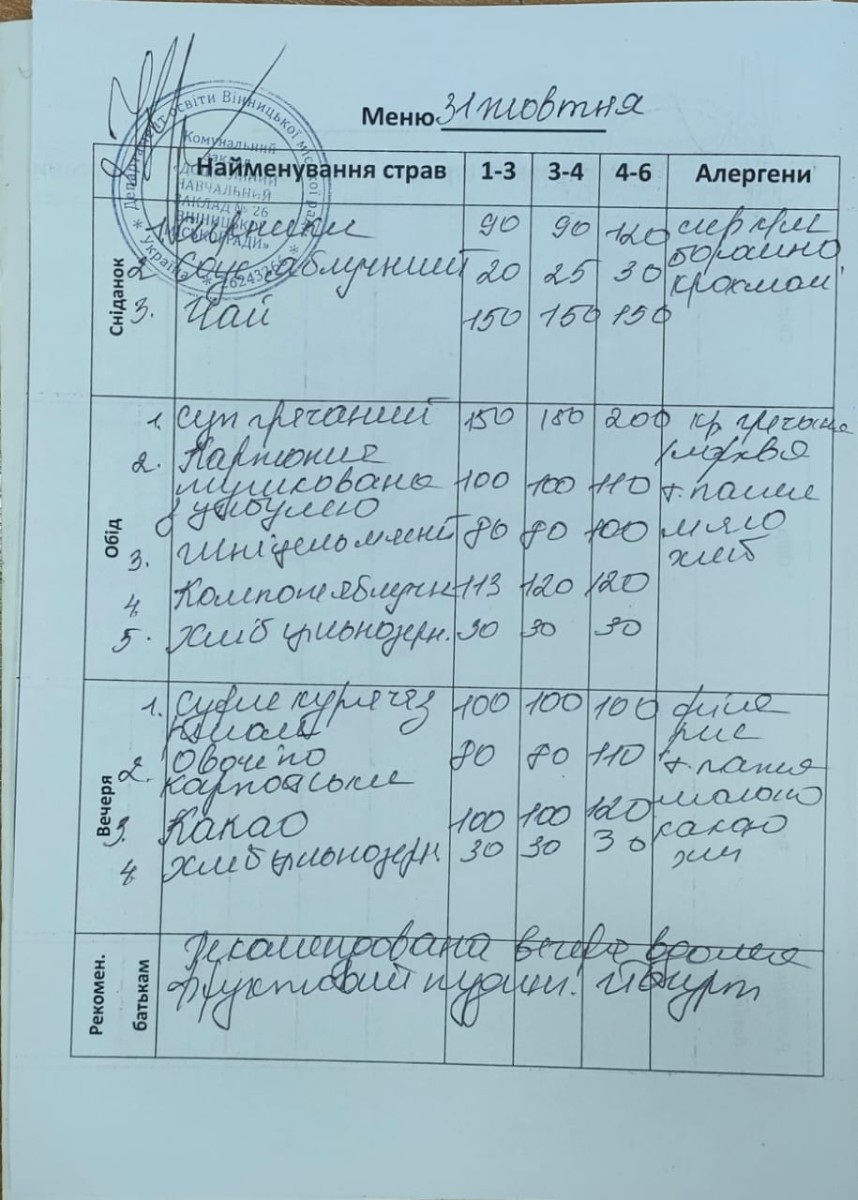 Меню 31 жовтня
Найменування страв 1-3 3-4 4-6 Алергени
Сніданок
1. 90 90 120 сир крм
борошно
2. Соус яблучний 20 25 30 крохмал
3. Чай 150 150 150
Обід
1. Суп гречаний 150 180 200 кр. гречана
2. Картопля морква
тушкована 100 100 110 т. паста
з цибулею
3. Шніцель мясний 80 80 100 мясо
хліб
4. Компот яблучн 113 120 120
5. Хліб цільнозерн. 30 30 30
Вечеря
1. Суфле куряче з 100 100 100 філе
рисом рис
2. Овочі по 80 80 110 т. паста
карпатськи
молоко
3. Какао 100 100 120 какао
4. Хліб цільнозерн. 30 30 30 хл
Рекомен.
батькам
Рекомендована вечеря вдома
Фруктовий пудинг. Йогурт
Департамент освіти Вінницької міської ради
Комунальний
заклад
НАВЧАЛЬНИЙ
ЗАКЛАД № 26
ВІННИЦЬКОЇ
МІСЬКОЇ РАДИ»
Україна